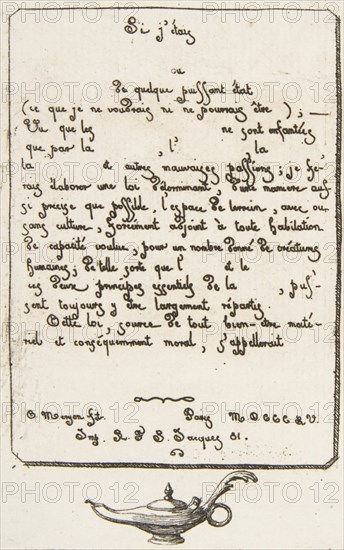 Si j'étais
ou
de quelque puissant état
(ce que je ne voudrais ni ne pourrais être) ; —
Vu que les ne sont enfantées
que par la , l' la
la & autres mauvaises passions ; je fe-
rais élaborer une loi déterminant, d'une manière aus-
si précise que possible l'espace de terrain, avec ou
sans culture, forcément adjoint à toute habitation
de capacité voulue, pour un nombre donné de créatures
humaines ; de telle sorte que l' et le
ces deux principes essentiels de la , puis-
sent toujours y être largement répartis.
Cette loi, source de tout bien-être maté-
riel et conséquemment moral, s'appellerait
C. Meryon ft. Paris MDCCCLV.
Imp. R. N. S. Jacques 81.
PHOTO12